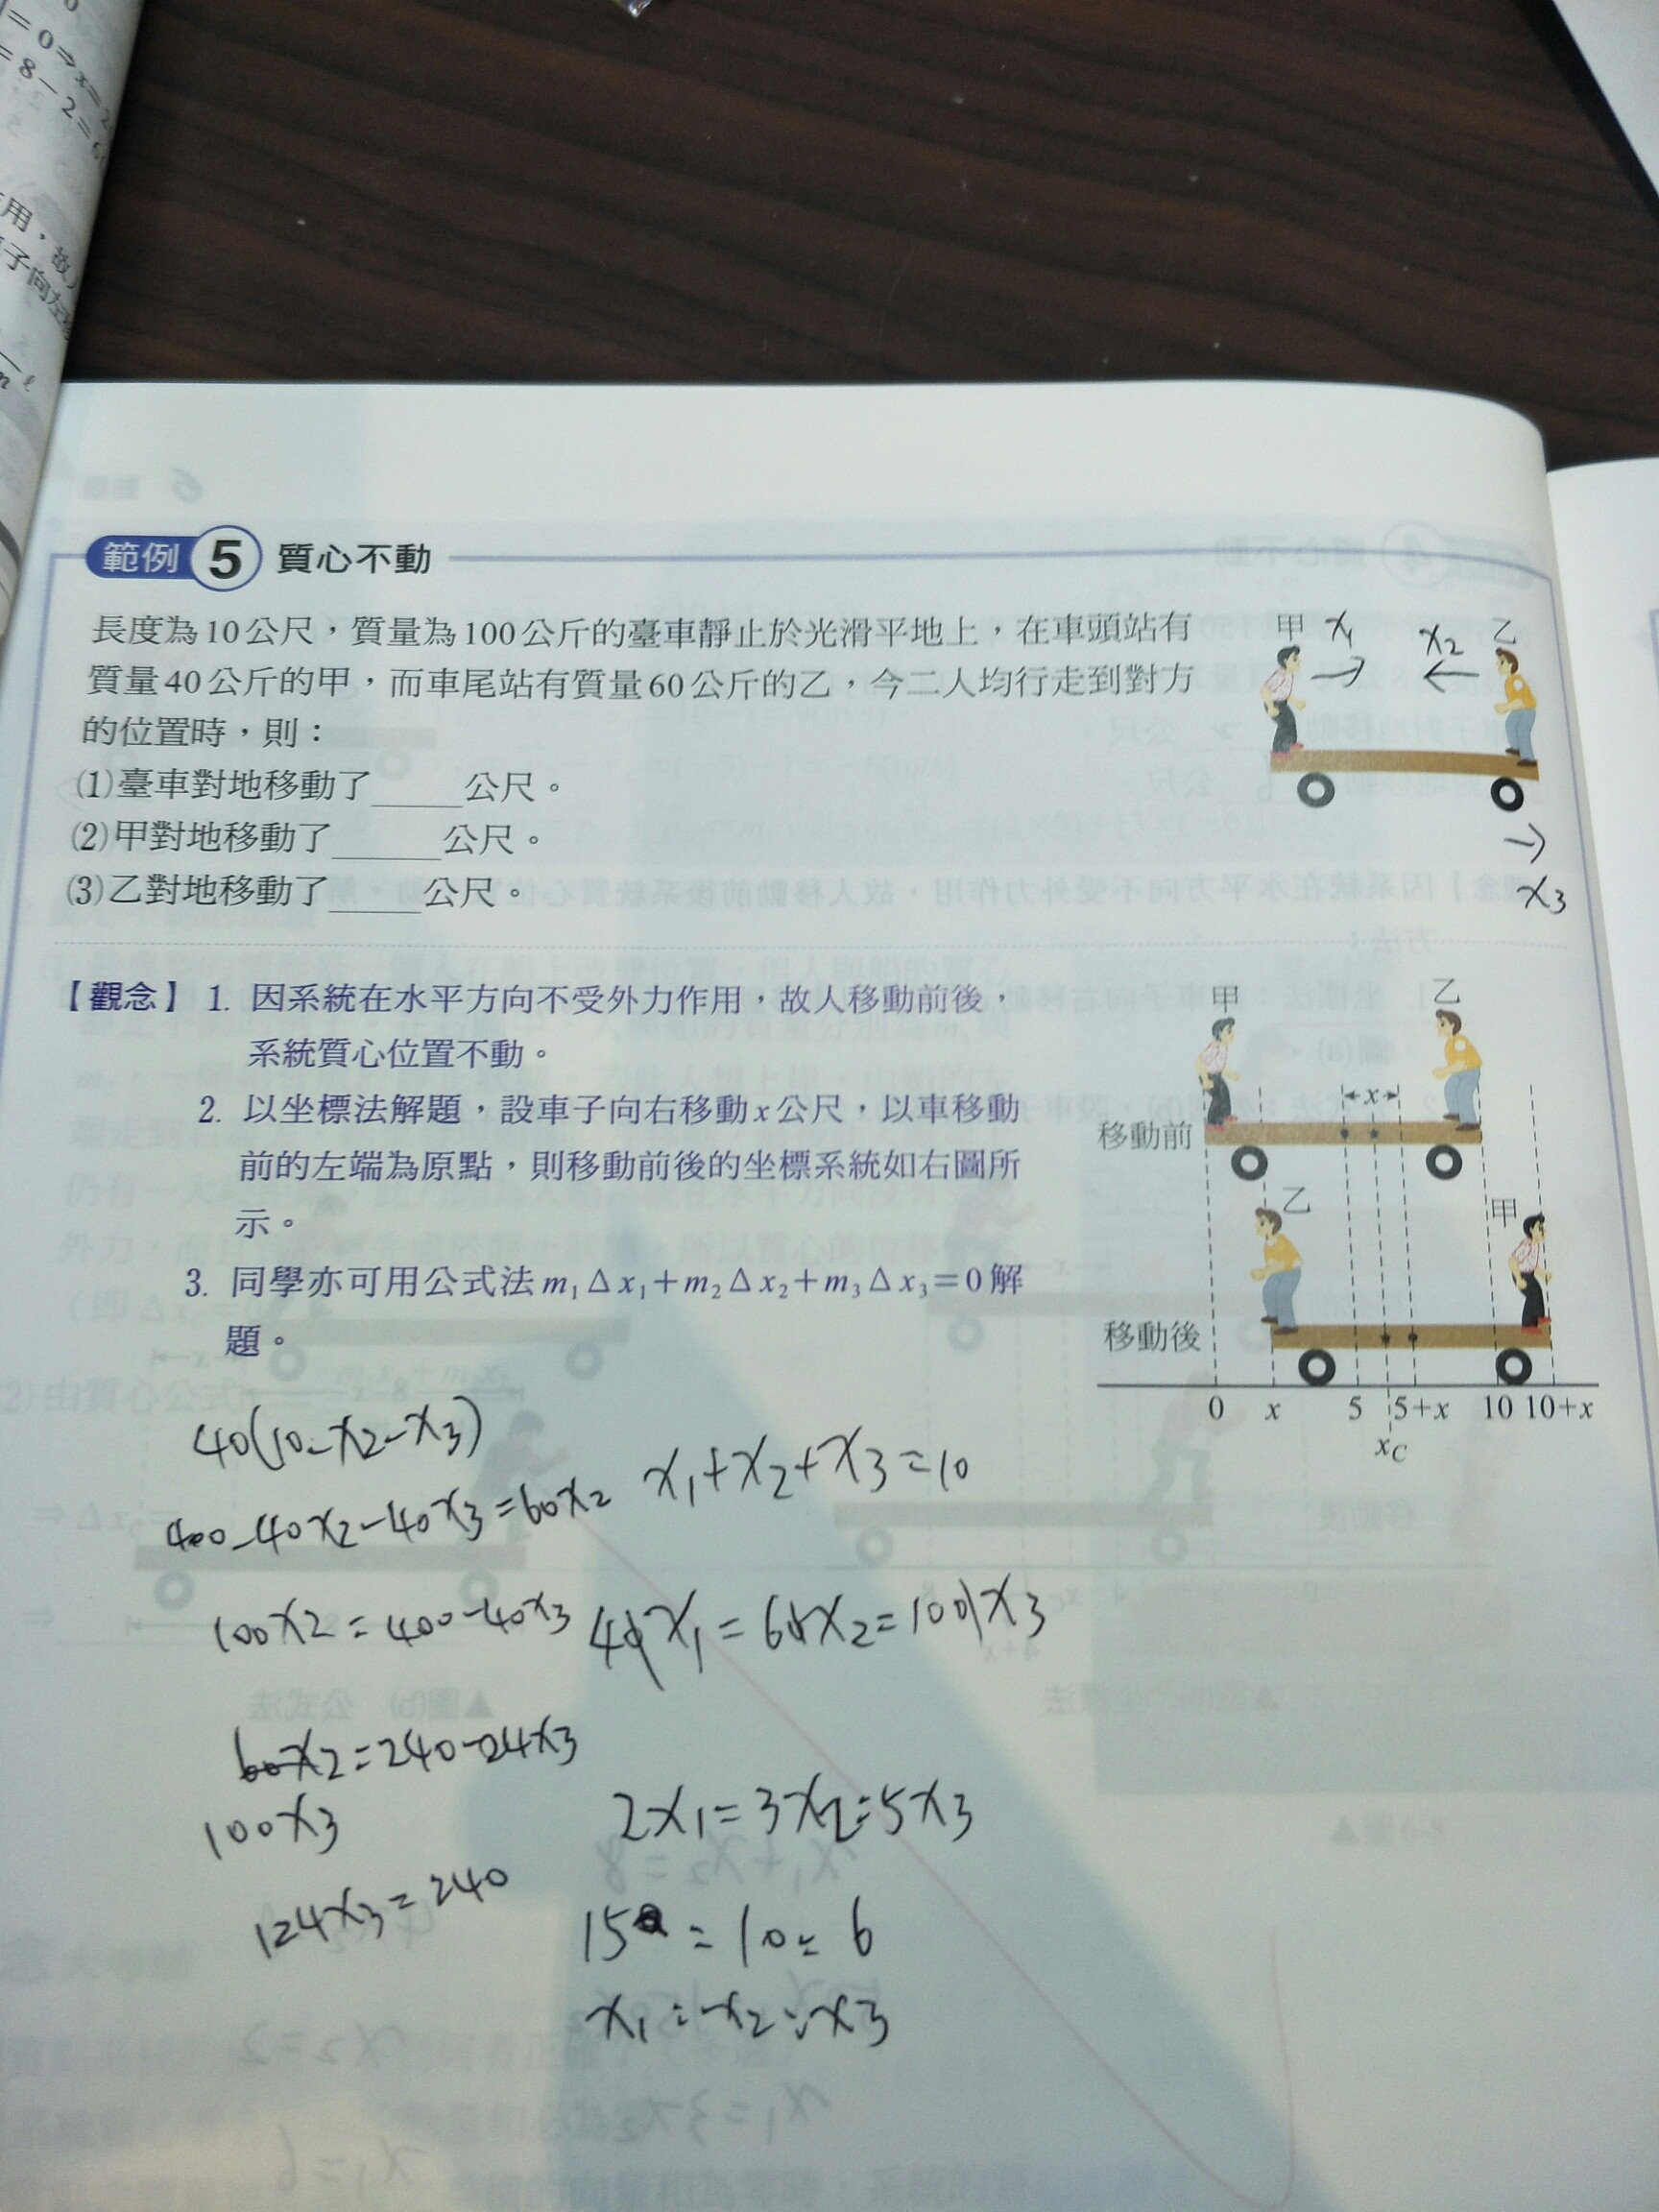 =0⇒x=2
=8-2=6
用，故
子向左
範例 5 質心不動
長度為10公尺，質量為100公斤的臺車靜止於光滑平地上，在車頭站有
質量40公斤的甲，而車尾站有質量60公斤的乙，今二人均行走到對方
的位置時，則：
(1)臺車對地移動了_____公尺。
(2)甲對地移動了______公尺。
(3)乙對地移動了_____公尺。
甲 x₁ x₂ 乙
→ ←
→
x₃
【觀念】1. 因系統在水平方向不受外力作用，故人移動前後，
系統質心位置不動。
2. 以坐標法解題，設車子向右移動x公尺，以車移動
前的左端為原點，則移動前後的坐標系統如右圖所
示。
3. 同學亦可用公式法m₁Δx₁+m₂Δx₂+m₃Δx₃=0解
題。
甲 乙
x
移動前
乙 甲
移動後
0 x 5 5+x 10 10+x
xC
40(10-x2-x3)
400-40x2-40x3=60x2
100x2=400-40x3
60x2=240-24x3
100x3
124x3=240
x1+x2+x3=10
40x1=60x2=100x3
2x1=3x2=5x3
15=10=6
x1:x2:x3